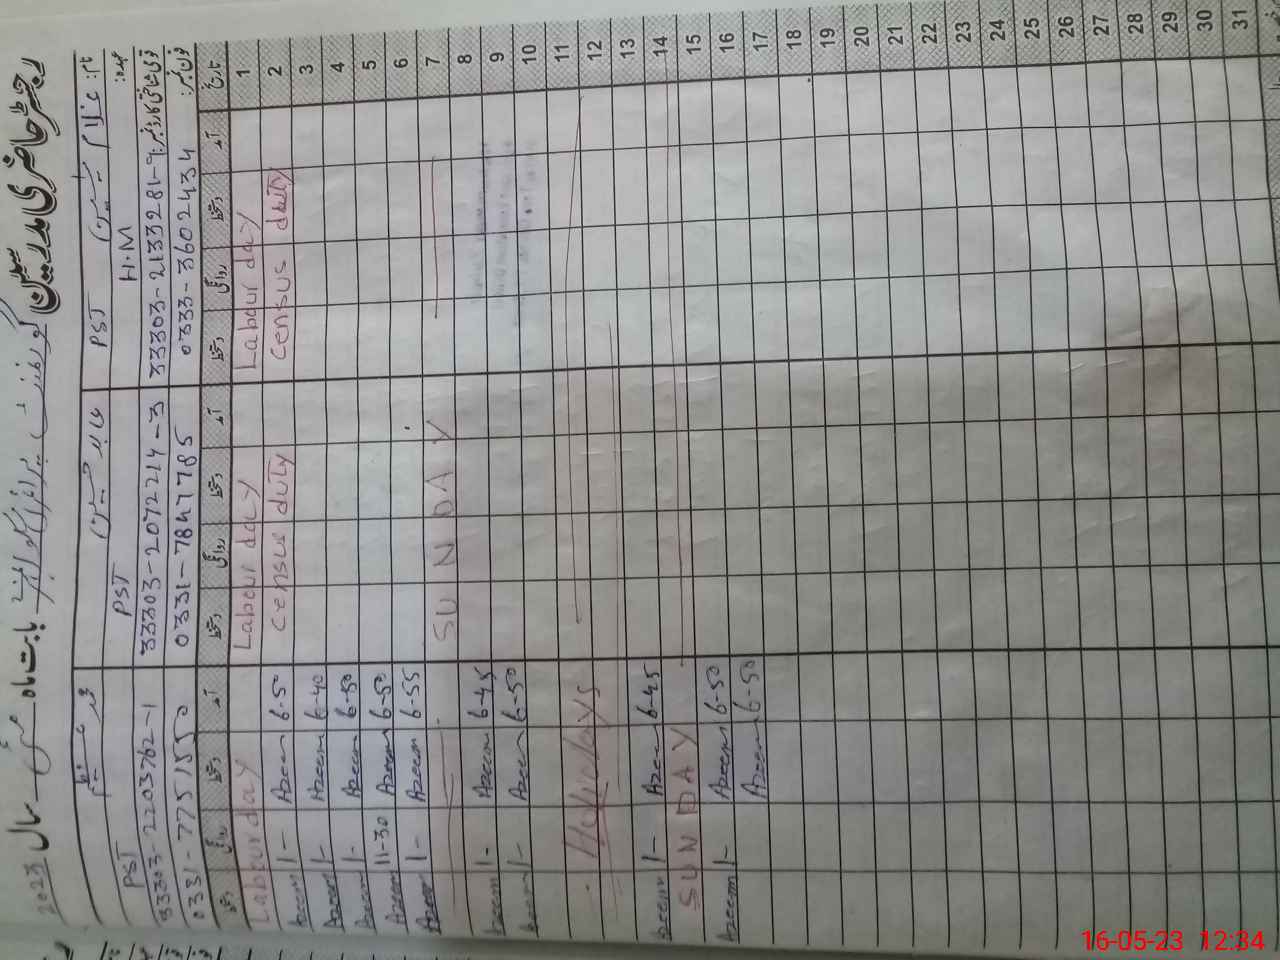 رجسٹر حاضری مدرسین گورنمنٹ
بابت ماہ مئی سال 2023
نام: غلام یٰسین
عہدہ: PST H.M
قومی شناختی کارڈ نمبر: 33303-2133281-9
فون نمبر: 0333-3602434
عابد حسین
PST
33303-2072214-3
0331-7847785
محمد عظیم
PST
33303-2203762-1
0331-7751550
تاریخ آمد دستخط روانگی دستخط آمد دستخط روانگی دستخط آمد دستخط روانگی دستخط
1 Labour day Labour day Labour day
2 Census duty Census duty 6-50 Azeem 1- Azeem
3 6-40 Azeem 1- Azeem
4 6-50 Azeem 1- Azeem
5 6-50 Azeem 11-30 Azeem
6 6-55 Azeem 1- Azeem
7 SUNDAY
8 6-45 Azeem 1- Azeem
9 6-50 Azeem 1- Azeem
10
11 Holidays
12
13
14 6-45 Azeem 1- Azeem
15 SUNDAY
16 6-50 Azeem 1- Azeem
17 6-50 Azeem
18
19
20
21
22
23
24
25
26
27
28
29
30
31
16-05-23 12:34